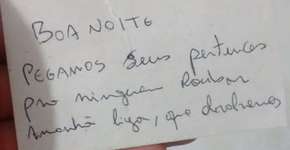 BOA NOITE
PEGAMOS Seus pertences
pro ninguem Roubar
Amanhã liga, que devolvemos